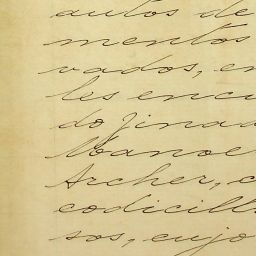 autos de
mentos
vados, en
les encu
do jinad
Manoel
Archer, c
codicill
sos, cujo